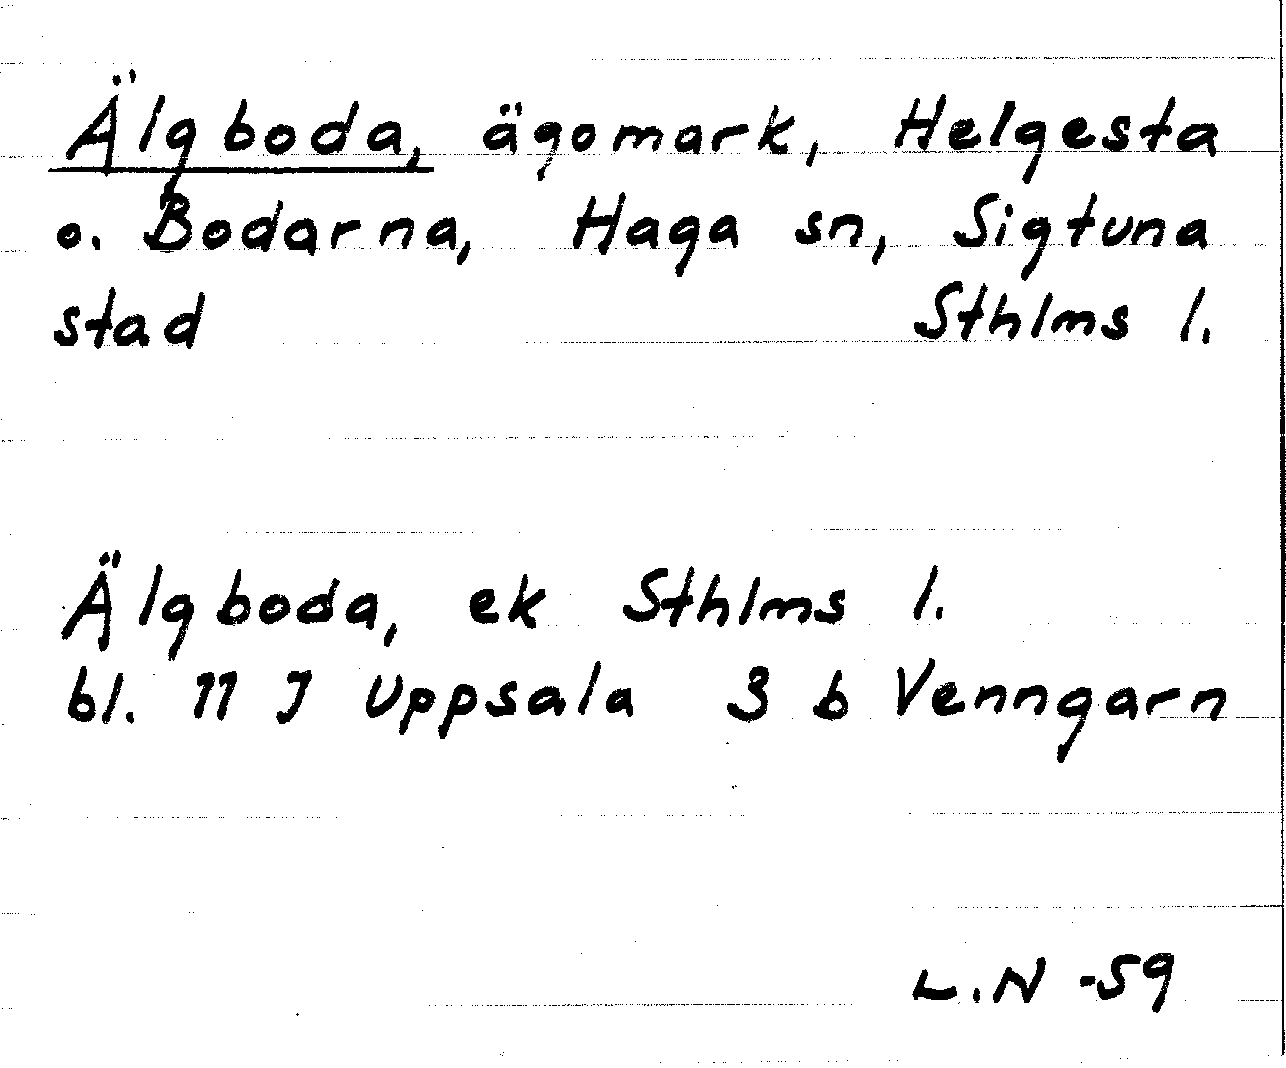 Älgboda, ägomark, Helgesta
o. Bodarna, Haga sn, Sigtuna
stad Sthlms l.
Älgboda, ek Sthlms l.
bl. 11 J Uppsala 3 b Venngarn
L.N -59